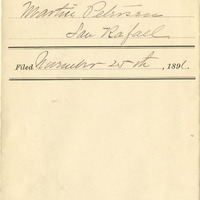 Martin Peterson
San Rafael
Filed November 25th, 1891.